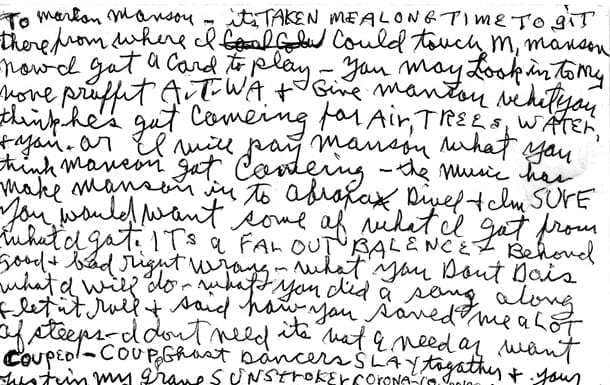 To marlon manson – its TAKEN ME A LONG TIME TO git
there from where I could touch M, manson
now I got a card to play – you may look in to my
none proffit A.T.W.A & Give manson what you
think hes got comeing for Air, TREES, WATER,
& you. or I will pay manson what you
think manson got comeing – the music has
make manson in to abraxas Divel & I'm SURE
you would want some of what I got from
what I got. ITS a FAR OUT BALENCE – Behond
good & bad right wrong – what you Dont Do is
what I will do – what you did a song along
& let it roll & said how you saved me a LOT
of steps – I dont need it its not a need or want
COUPEO – COUP. Ghost Dancers SLAY together & your
just in my grave SUNSTROKER CORONA-